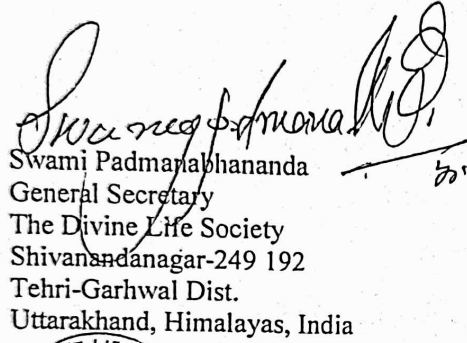 Swami Padmanabhananda
General Secretary
The Divine Life Society
Shivanandanagar-249 192
Tehri-Garhwal Dist.
Uttarakhand, Himalayas, India